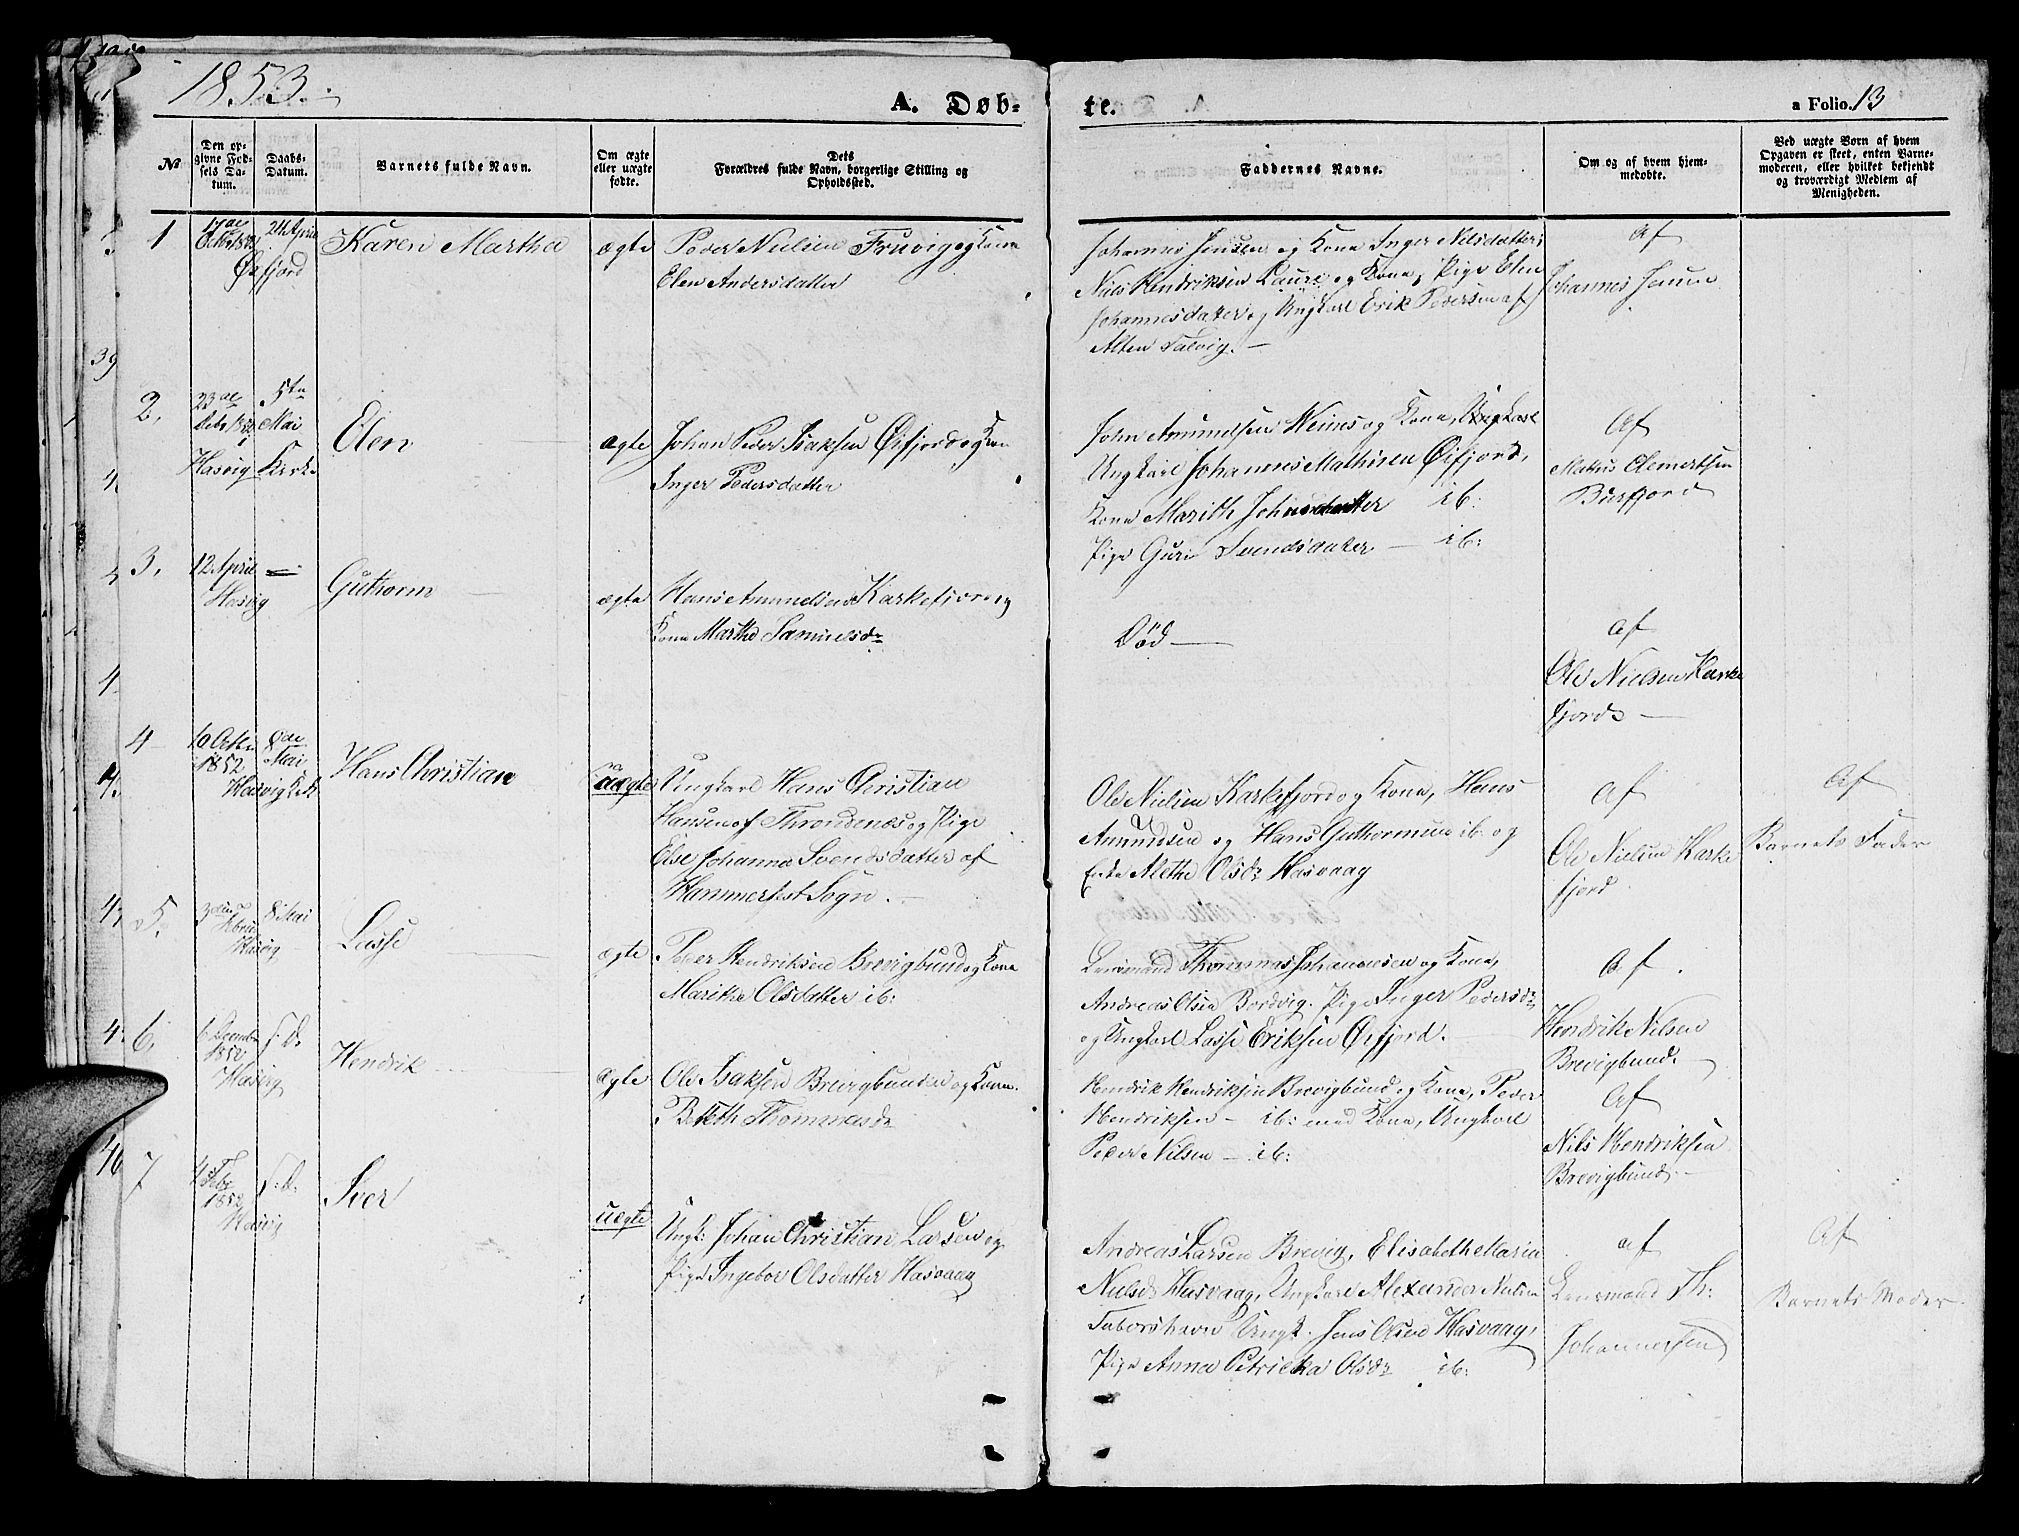 1853.
A. Døb-
te.
a Folio. 13
No
Den op-
givne Fød-
sels Da-
tum.
Daabs-
Datum.
Barnets fulde Navn.
Om ægte
eller uægte
fødte.
Dets
Forældres fulde Navn, borgerlige Stilling og
Opholdssted.
Faddernes Navne.
Om og af hvem hjem-
medøbte.
Ved uægte Børn af hvem
Opgaven er skeet, enten Barne-
moderen, eller hvilket bekjendt
og troværdigt Medlem af
Menigheden.
1
17de
24 April
Øxfjord
Karen Martha
ægte
Peder Nielsen Fruvig og Kona
Elen Andersdatter
Johannes Jensen og Kona Inger Nilsdatter;
Niels Hendriksen Lauri og Kona, Pige Elen
Johannesdater og Ungkarl Erik Pedersen af
Alten Talvig. —
Af
Johannes Jensen
2.
23de
5te
Mai
Hasvig Kirke
Elen
ægte
Johan Peder Isaksen Øxfjord og Kona
Inger Pedersdatter
John Amundsen Meines og Kona, Ungkarl
Ungkarl Johannes Mathisen Øxfjord,
Kona Marith Johnsdatter ib:
Pige Guri Svendsdater — ib:
Af
Mathis Clemertsen
Burfjord
3.
12 April
Hasvig
Guthorm
ægte
Hans Amundsen Karkefjord og
Kona Marthe Samuelsdr
Død —
Af
Ole Nielsen Karke
fjord —
4
10 Octbr
1852
8de
Mai
Hasvig Kirke
Hans Christian
uægte
Ungkarl Hans Christian
Hansen af Throndenes og Pige
Else Johanna Svendsdatter af
Hammerfest Sogn. —
Ole Nielsen Karkefjord og Kona, Hans
Amundsen og Hans Guthormsen ib. og
Enke Alethe Olsdr Hasvaag
Af
Ole Nielsen Karke
fjord
Af
Barnets Fader
5.
8 Mai
Hasvig
Lasse
ægte
Peder Hendriksen Brevigbund og Kona
Marithe Olsdatter ib:
Lensmand Thommas Johannesen og Kona,
Andreas Olsen Bordvig. Pige Inger Pedersdr
og Ungkarl Lasse Eriksen Øxfjord. —
Af
Hendrik Nilsen
Brevigbund. —
6.
6 Decembr
1852
S. D.
Hasvig
Hendrik
ægte
Ole Isaksen Brevigbunden og Kona.
Bereth Thommasdr
Hendrik Hendriksen Brevigbund og Kona, Peder
Hendriksen — ib: med Kona, Ungkarl
Peder Nilsen — ib:
Af
Nils Hendriksen
Brevigbund. —
7
4 Febr
1852
S. D.
Hasvig
Iver
uægte
Ungk: Johan Christian Larsen og
Pige Ingebor Olsdatter Hasvaag
Andreas Larsen Brevig, Elisabeth Maria
Nielsdr Hasvaag, Ungkarl Alexander Nielsen
Ungk. Jens Olsen Hasvaag,
Pige Anna Petrikka Olsdr ib:
af
Lensmand Th:
Johannessen
Af
Barnets Moder